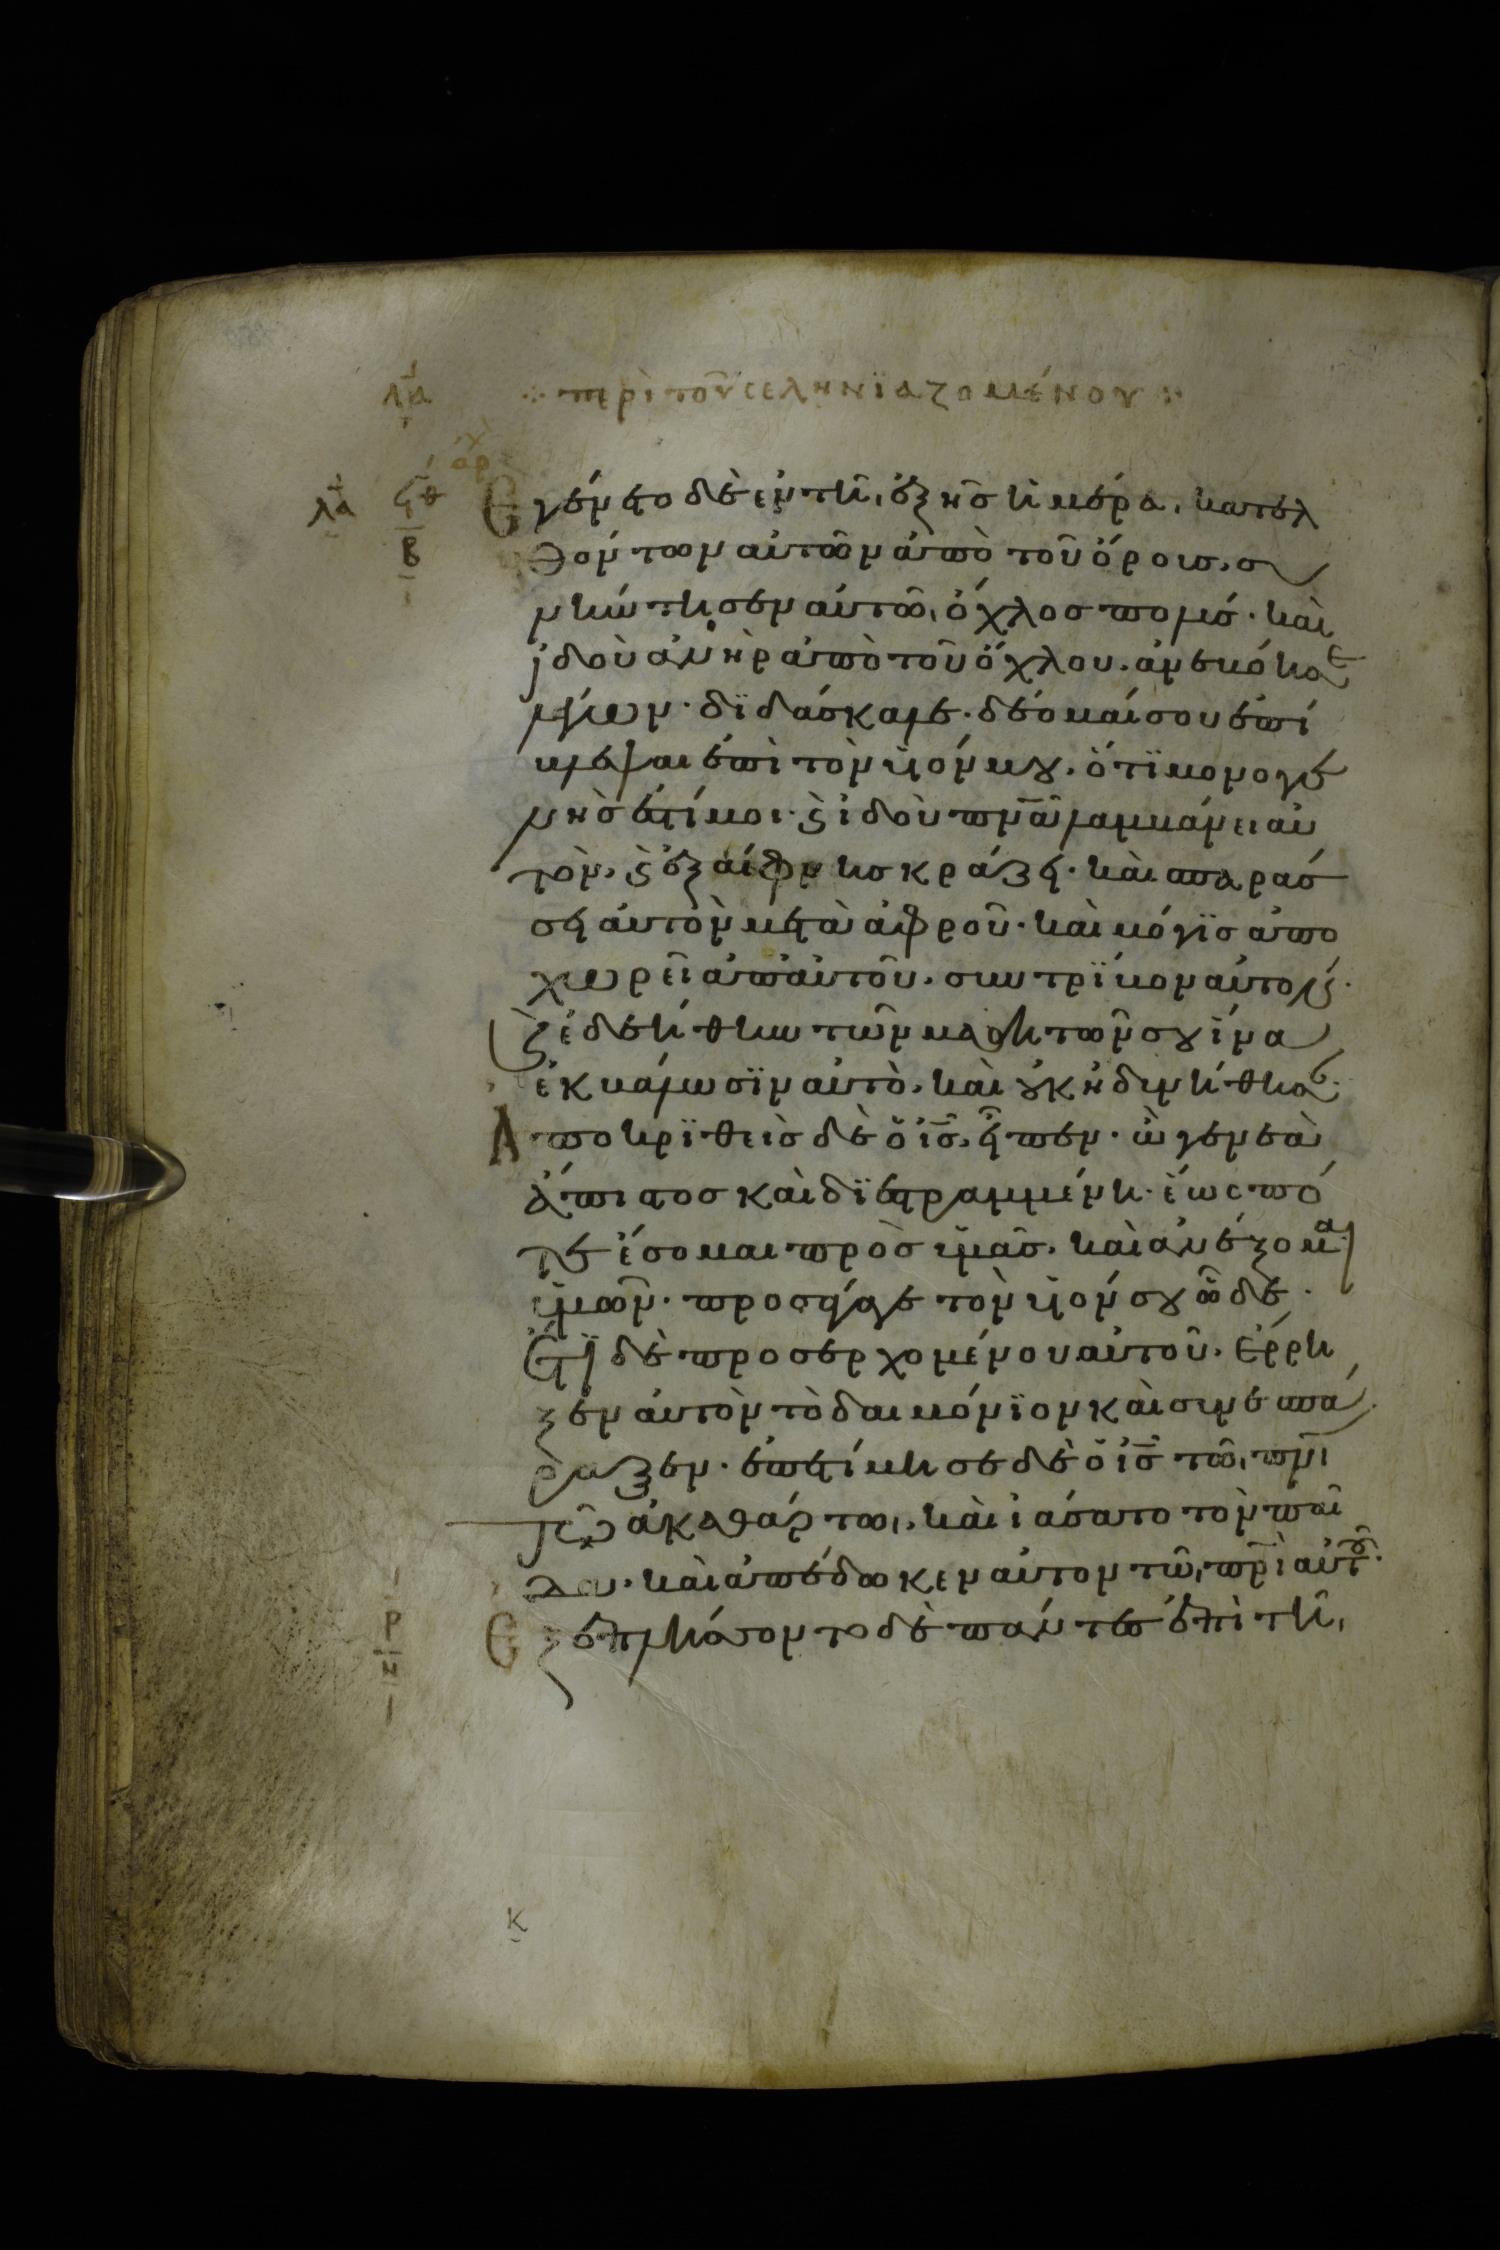 λα
∻ περὶ τοῦ σεληνϊαζομένου ∻
ἀρχ
λα
ϟθ
β
Εγένετο δὲ ἐν τῆ ἑξῆς ἡμέρα, κατελ
θόντων αὐτῶν ἀπὸ τοῦ ὄρους, συ
νήντησεν αὐτῶ ὄχλος πολύς· καὶ
ἰδοὺ ἀνὴρ ἀπὸ τοῦ ὄχλου, ἀνεβόησε
λέγων· δϊδάσκαλε· δέομαί σου ἐπί
βλεψαι ἐπὶ τὸν υἱόν μου, ὅτϊ μονογε
νὴς ἐστί μοι· καὶ ἰδοὺ πνᾶ λαμβάνει αὐ
τὸν, καὶ ἐξαίφνης κράζει· καὶ σπαράσ
σει αὐτὸν μετὰ ἀφροῦ· καὶ μόγϊς ἀπο
χωρεῖ ἀπ' αὐτοῦ, συντρῖβον αὐτόν·
καὶ ἐδεήθην τῶν μαθητῶν σου ἵνα
ἐκβάλωσϊν αὐτὸ, καὶ οὐκ ἠδυνήθησαν·
Αποκρϊθεὶς δὲ ὁ ις, εἶπεν· ὦ γενεὰ
ἄπιστος καὶ δϊεστραμμένη· ἕως πό
τε ἔσομαι πρὸς ὑμᾶς, καὶ ἀνέξομαι
ὑμῶν· προσάγαγε τὸν υἱόν σου ὧδε·
Ετϊ δὲ προσερχομένου αὐτοῦ, ἔρρη
ξεν αὐτὸν τὸ δαιμόνϊον καὶ συνεσπά
ραξεν· ἐπετίμησε δὲ ὁ ις τῶ πνι
τῶ ἀκαθάρτω, καὶ ἰάσατο τὸν παῖ
δα· καὶ ἀπέδωκεν αὐτον τῶ πρὶ αὐτοῦ·
ρ
Εξεπλήσσοντο δὲ πάντες ἐπὶ τῆ
κ